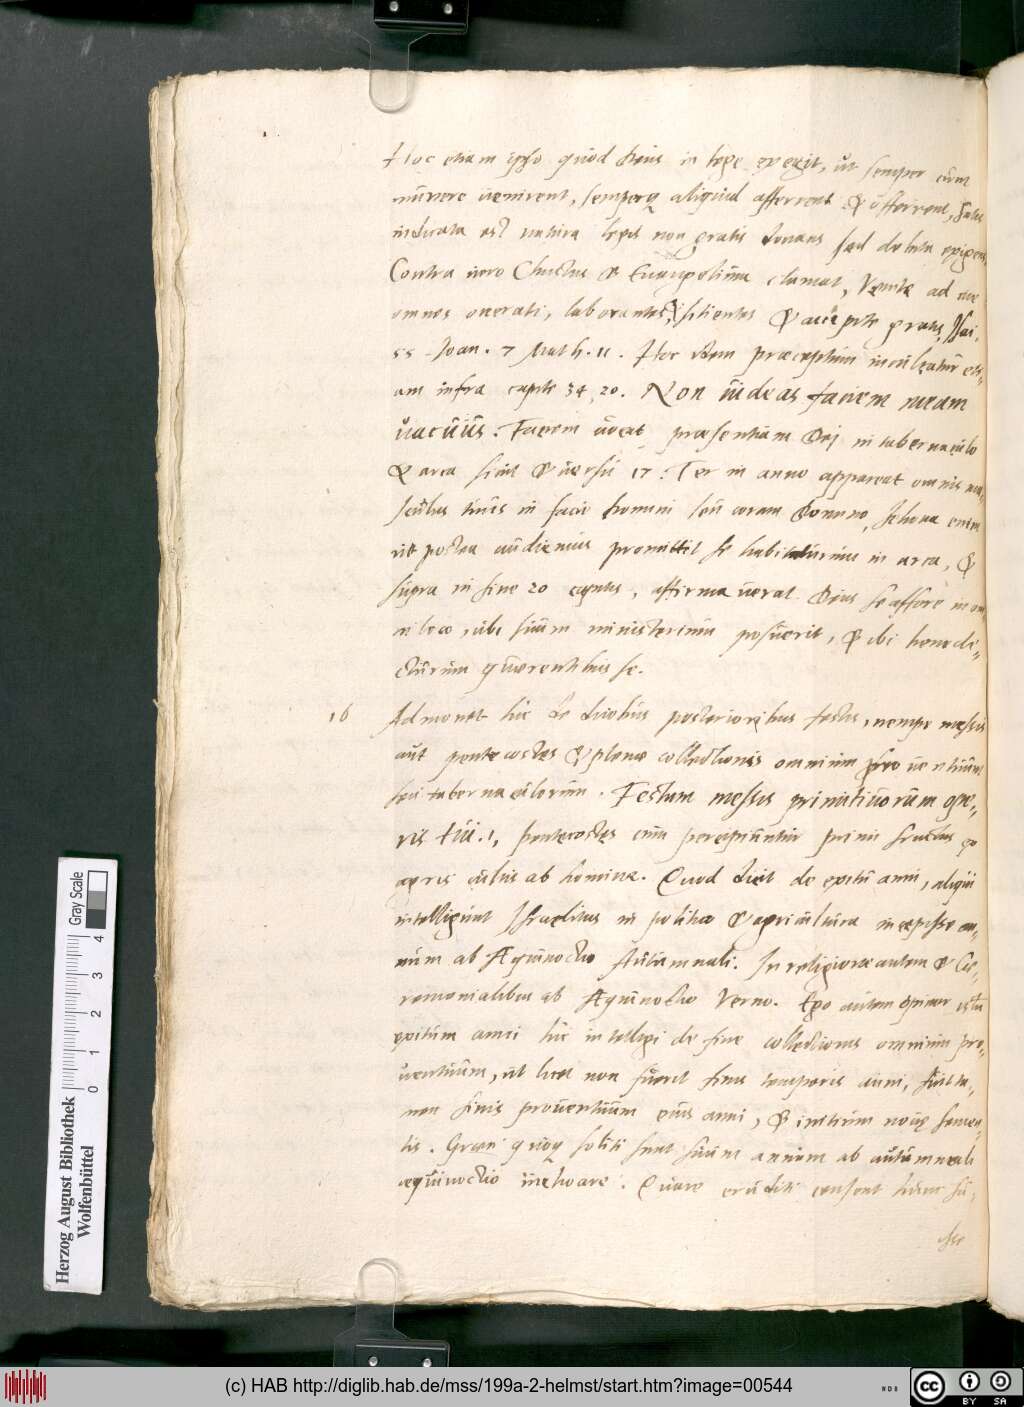 Hoc etiam ipso quod Deus in lege exegit, ut semper cum
munere venirent, semperq aliquid afferrent & offerrent, satis
indicata est natura legis non gratis donans sed debita exigens
Contra vero Christus & Euangelium clamat, Venite ad me
omnes onerati, laborantes, sitientes & accipite gratis, Isai.
55 Ioan. 7 Math. 11. Hoc idem præceptum inculcatur eti=
am infra capite 34, 20. Non videas faciem meam
vacuus. Faciem vocat præsentiam Dej in tabernaculo
& arca sicut & versu 17: Ter in anno appareat omnis ma=
sculus tuus in facie Domini seu coram Domino Iehova enim
ut postea audiemus promittit se habitaturum in arca, &
supra in fine 20 capitis, affirmaverat Deus se affore in om
ni loco, ubi suum ministerium posuerit, & ibi benedi=
cturum quærentibus se.
16 Admonet hic de duobus posterioribus festis, nempe messis
aut pentecostes & plenæ collectionis omnium proventuum
seu tabernaculorum. Festum messis primitivorum ope=
ris tui .i. pentecostes cum percipiuntur primi fructus ex
agris cultis ab homine. Quod dicit de exitu anni, aliqui
intelligunt Israelitas in politia & agricultura incepisse an=
num ab Æquinoctio Autumnali. In religione autem & Ce=
remonialibus ab Æquinoctio Verno. Ego autem opinor istum
exitum anni hic intelligi de fine collectionis omnium pro=
ventuum, ut licet non fuerit finis temporis anni, fuit ta=
men finis proventuum eius anni, & initium novę semen=
tis. Græci quoq soliti sunt suum annum ab autumnali
æquinoctio inchoare. Quare eruditi censent hunc fu=
isse
Gray Scale
0 1 2 3 4
Herzog August Bibliothek
Wolfenbüttel
(c) HAB http://diglib.hab.de/mss/199a-2-helmst/start.htm?image=00544
cc BY SA